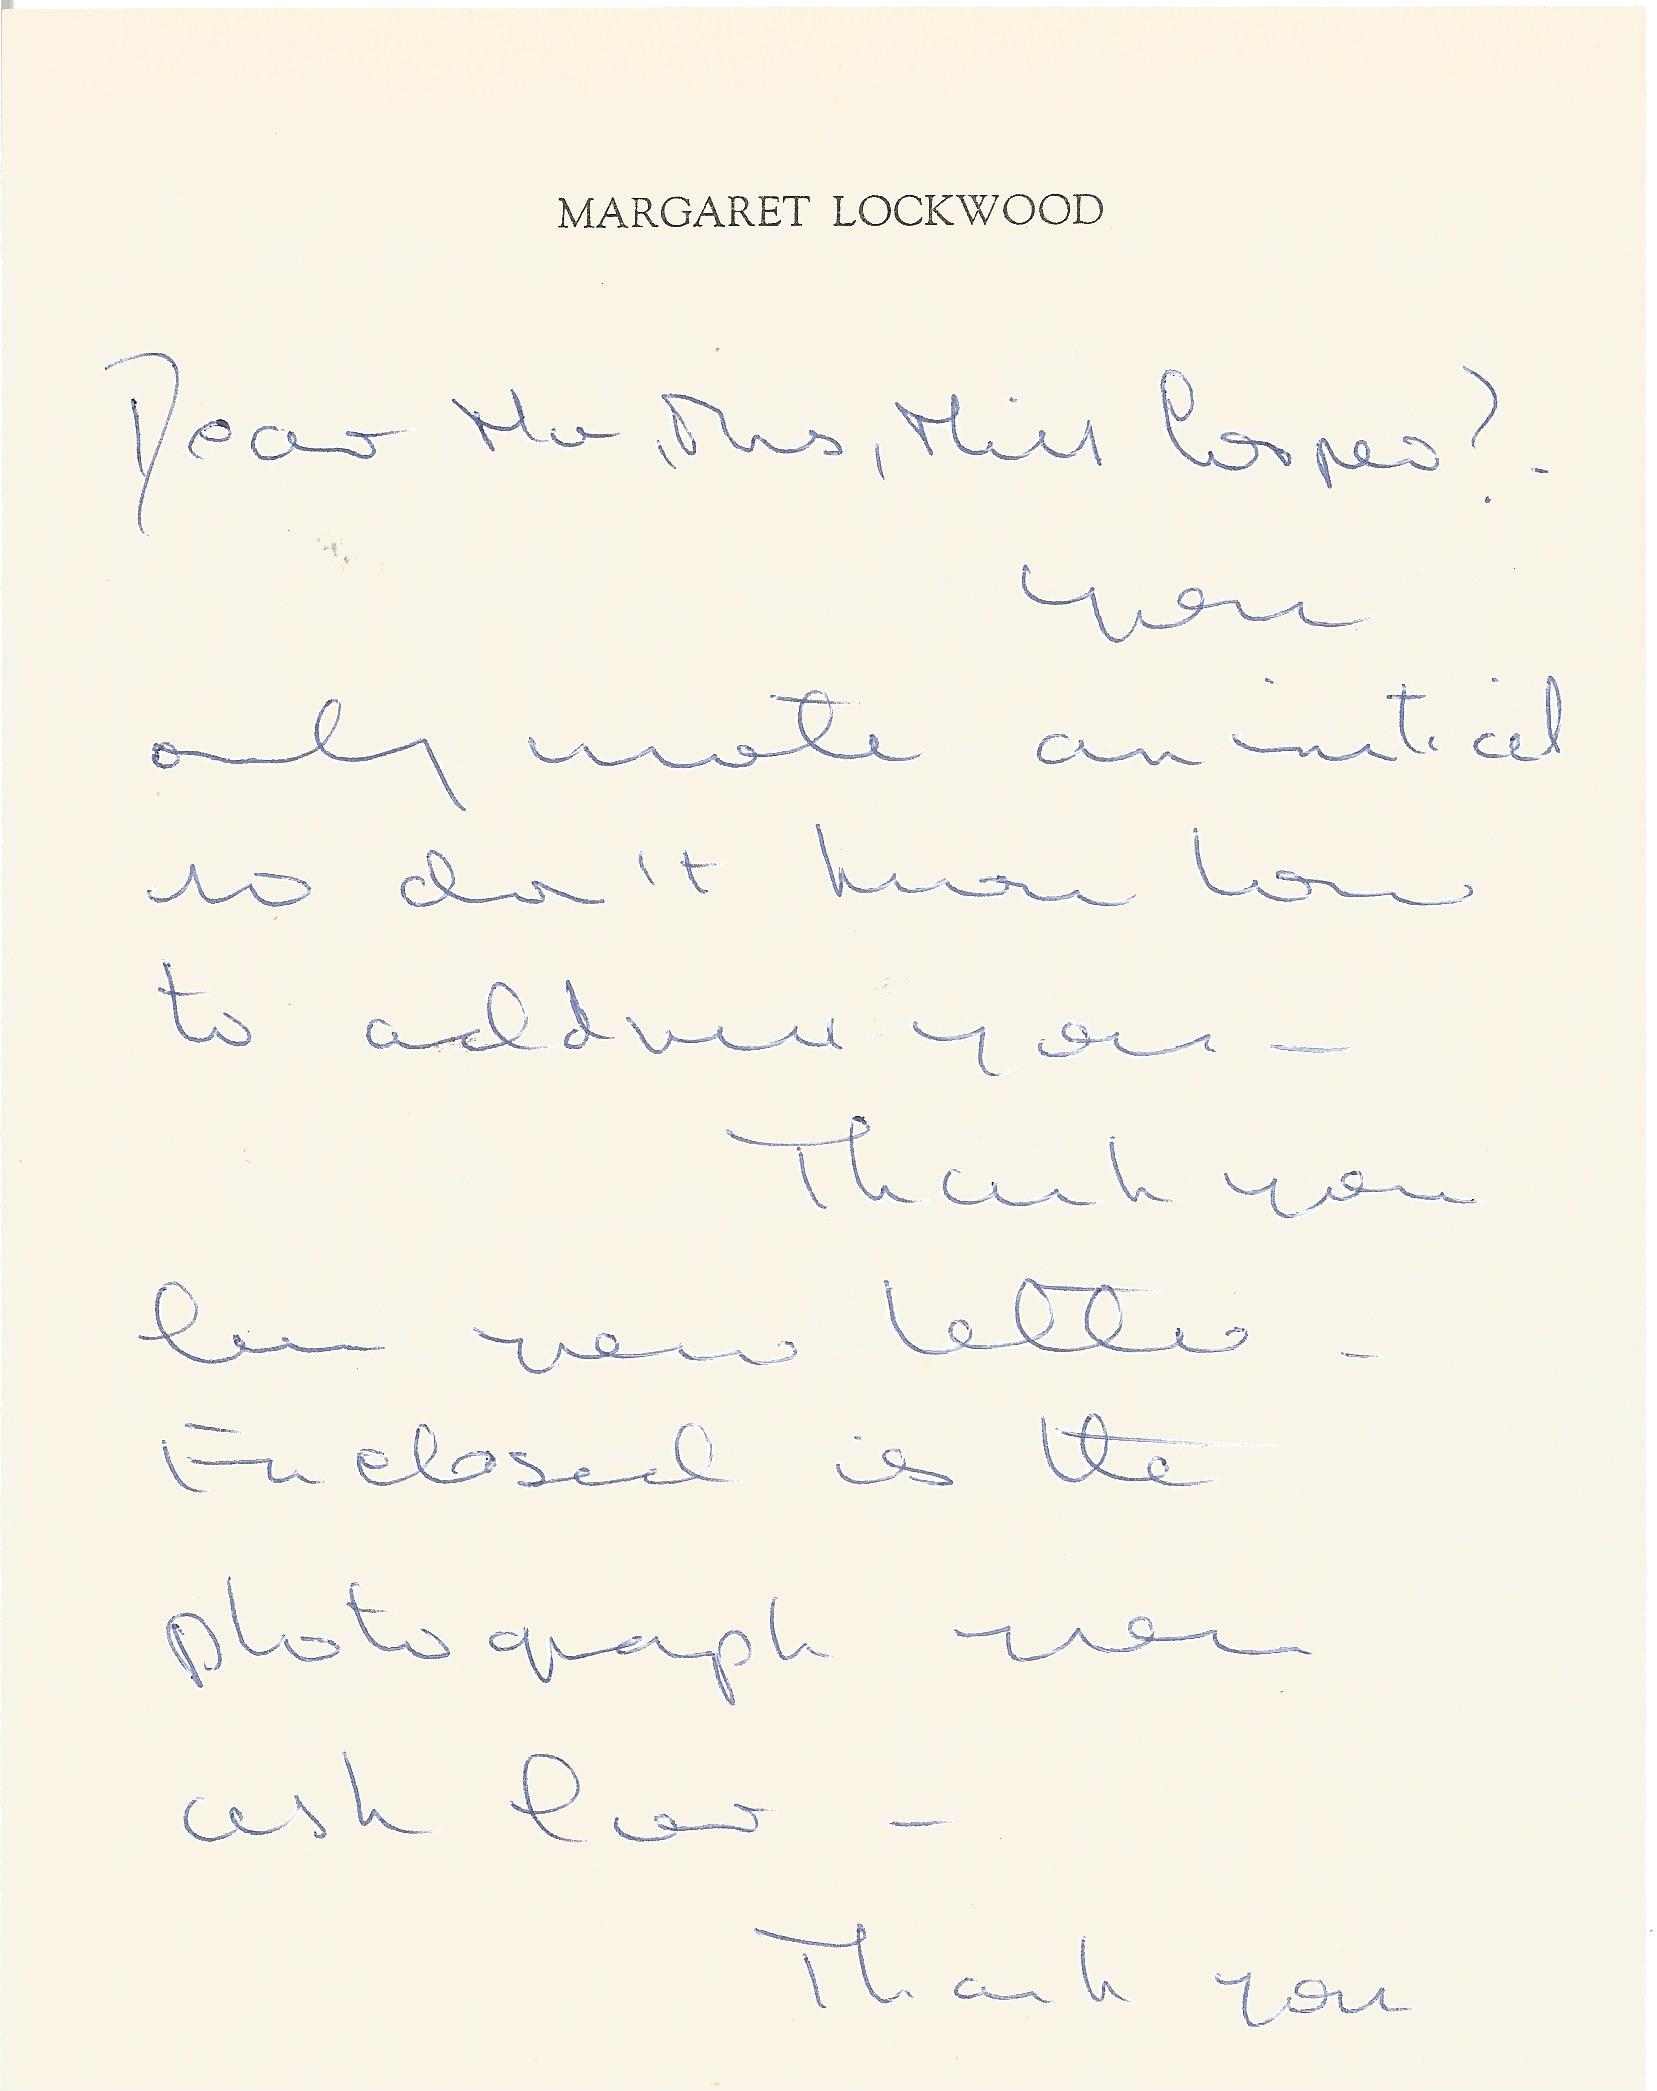 MARGARET LOCKWOOD
Dear Mr, Mrs, Miss Cooper? -
you
only wrote an initial
so don't know how
to address you –
Thank you
for your letter -
Enclosed is the
photograph you
ask for –
Thank you